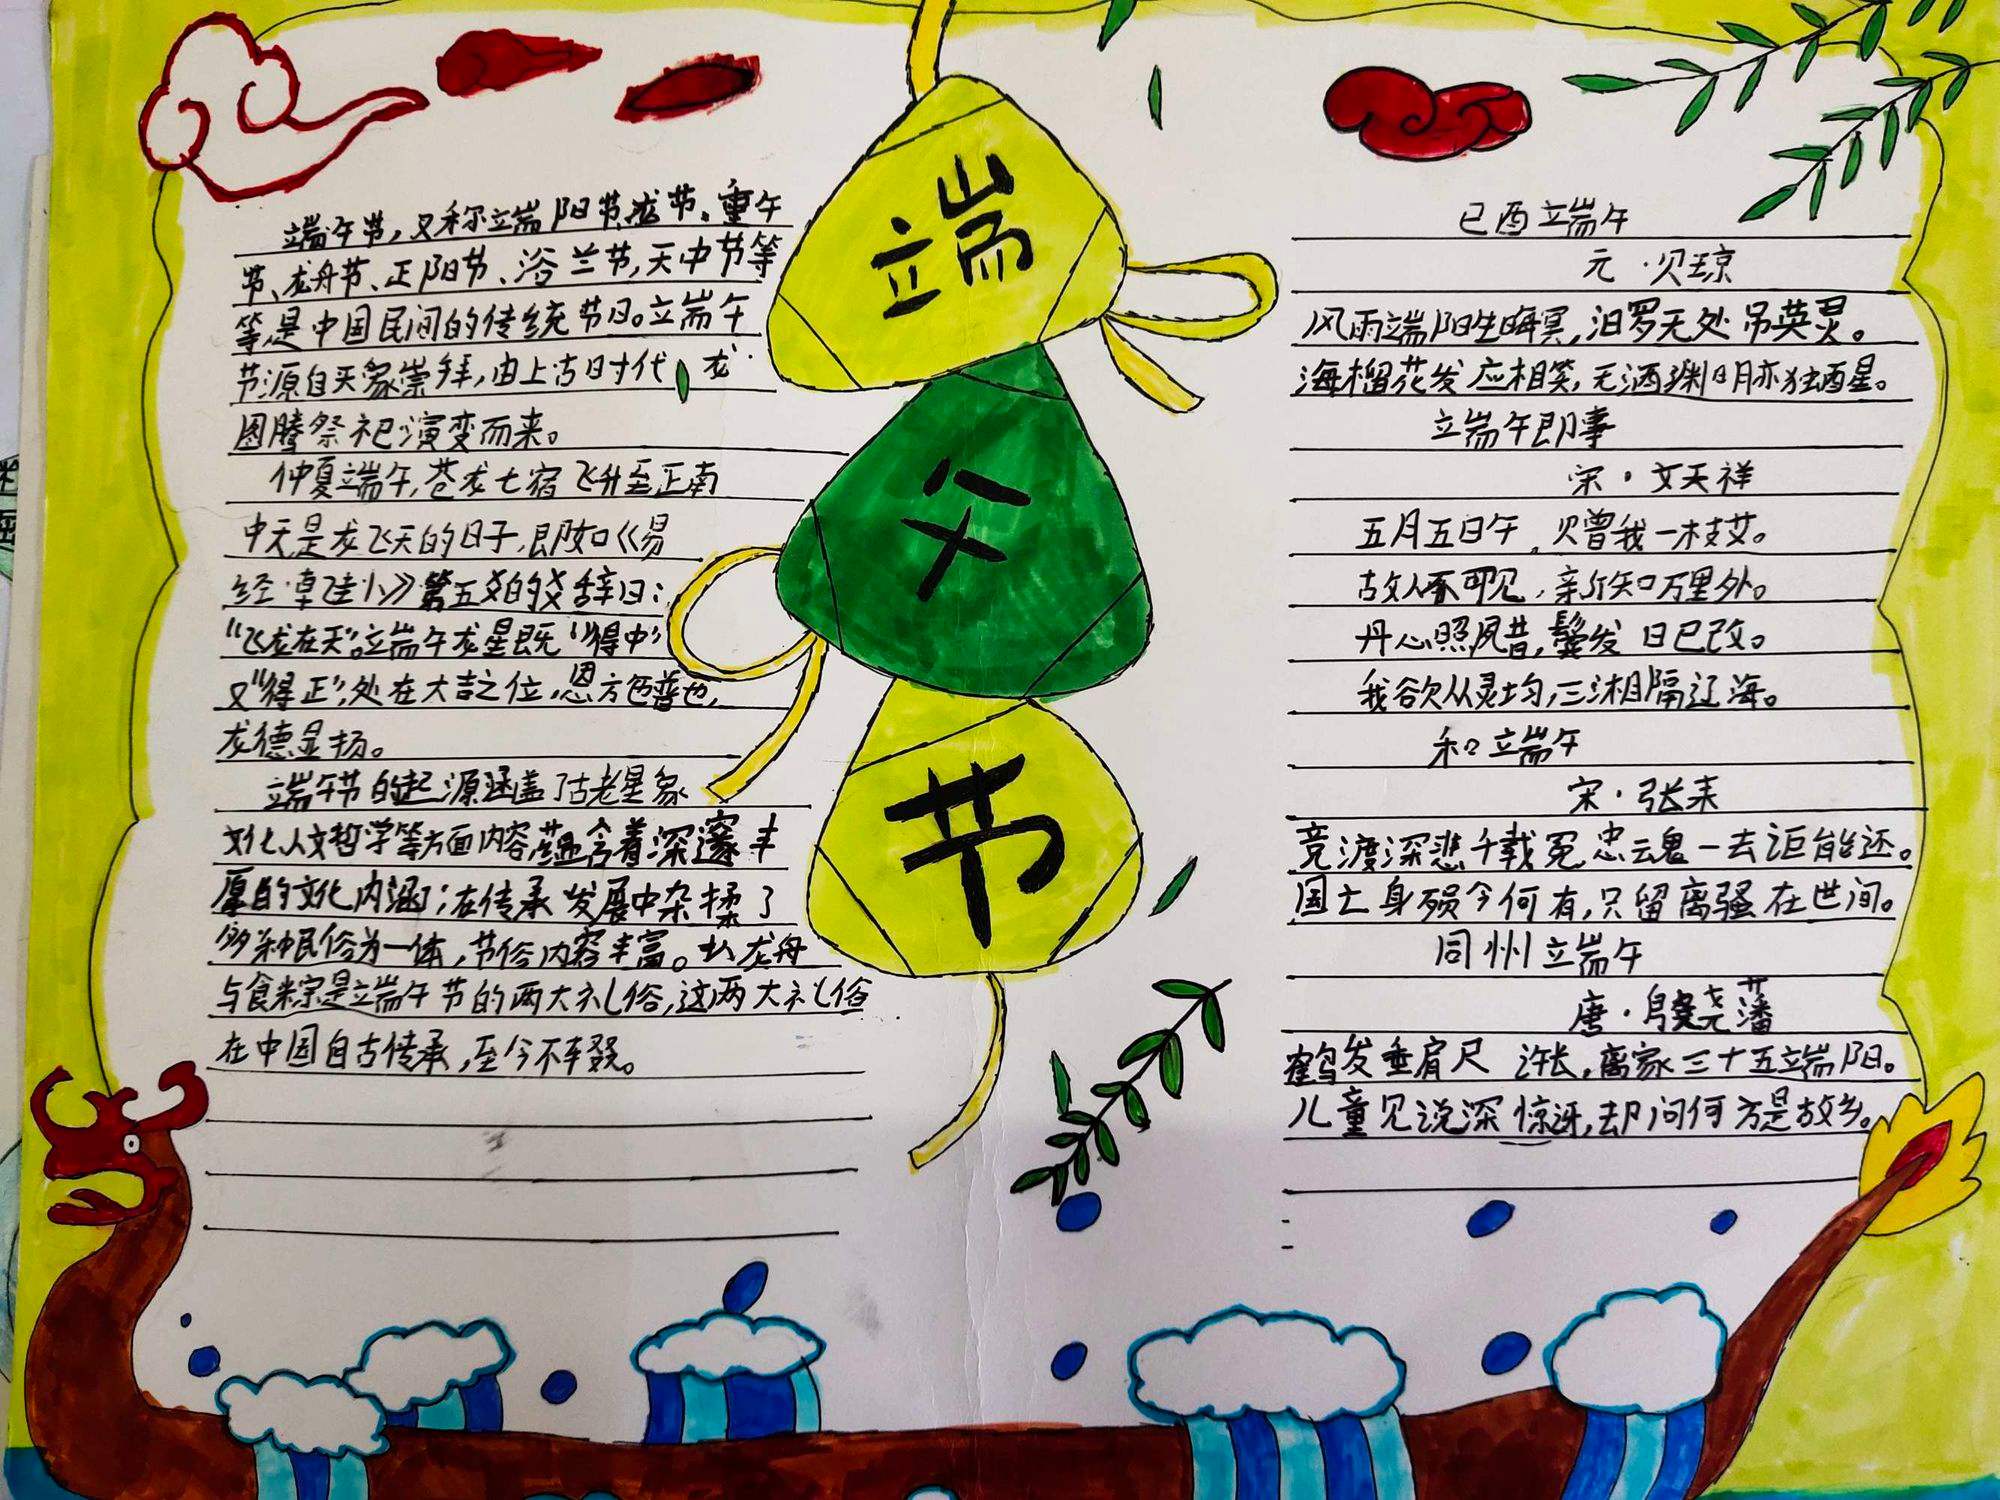 端午节
端午节,又称端阳节、龙节、重午
节、龙舟节、正阳节、浴兰节,天中节等
等,是中国民间的传统节日。端午
节源自天象崇拜,由上古时代 龙
图腾祭祀演变而来。
仲夏端午,苍龙七宿飞升至正南
中天是龙飞天的日子,即如《易
经·卦》第五爻的爻辞曰:
“飞龙在天”。端午龙星既“得中”
又“得正”,处在大吉之位,恩方色普也,
龙德显扬。
端午节的起源涵盖了古老星象
文化、人文哲学等方面内容,蕴含着深邃丰
厚的文化内涵;在传承发展中杂揉了
多种民俗为一体,节俗内容丰富。扒龙舟
与食粽是端午节的两大礼俗,这两大礼俗
在中国自古传承,至今不辍。
己酉端午
元·贝琼
风雨端阳生晦冥,汨罗无处吊英灵。
海榴花发应相笑,无酒渊明亦独酉星。
端午即事
宋·文天祥
五月五日午,赠我一枝艾。
故人不可见,亲知万里外。
丹心照夙昔,鬓发日已改。
我欲从灵均,三湘隔辽海。
和端午
宋·张耒
竞渡深悲千载冤忠云鬼一去讵能还。
国亡身殒今何有,只留离骚在世间。
同州端午
唐·殷尧藩
鹤发垂肩尺许长,离家三十五端阳。
儿童见说深惊讶,却问何方是故乡。